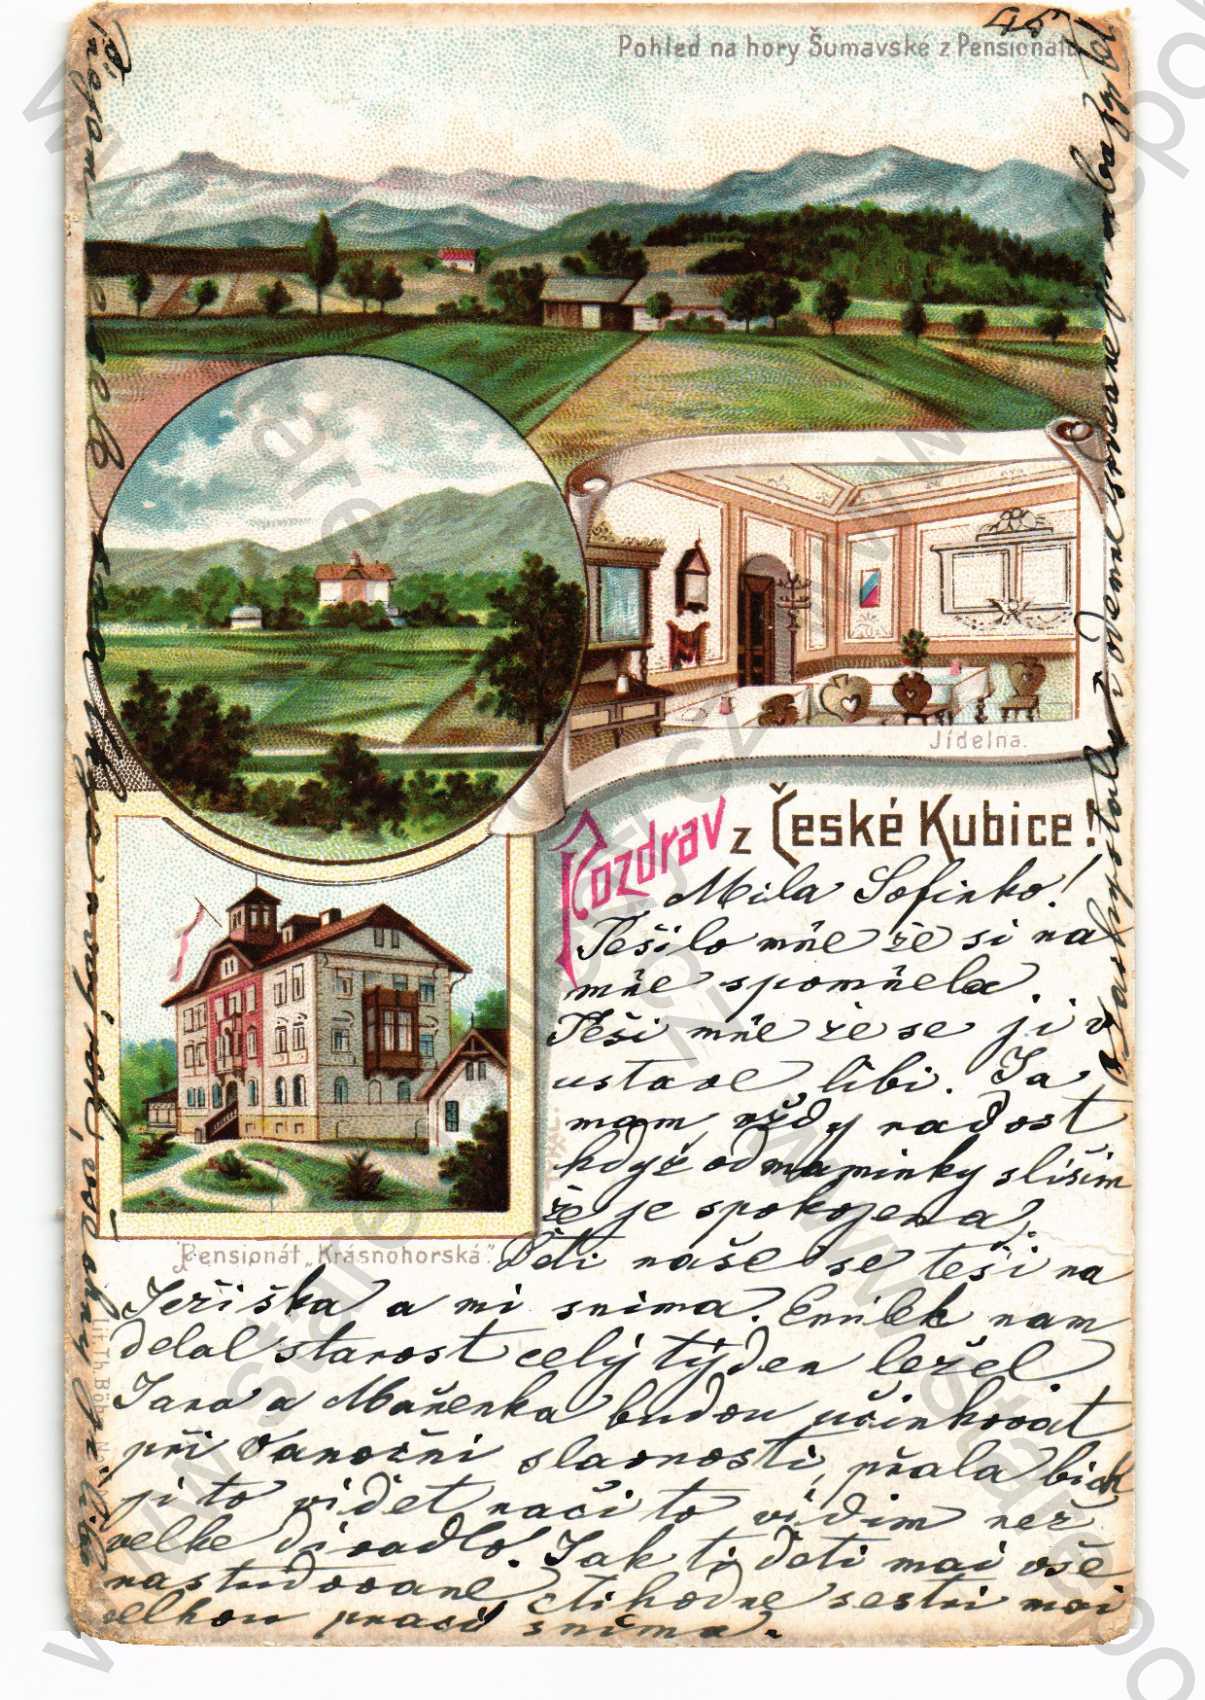 Pohled na hory Šumavské z Pensionátu
Jídelna.
Pozdrav z České Kubice!
Pensionát „Krásnohorská".
Mila Sofinko!
Tešilo mňe že si na
mňe spomňela.
Teši mňe že se ji v
ustave libi. Ja
mam vždy radost
když od maminky slišim
že je spokojena.
Deti naše se teši na
Ježiška a mi snima. Emilek nam
delal starost celý týden ležel
Jara a Mařenka budou učinkovat
při Vanočni slavnosti, přala bich
ji to videt rači to vidim než
velke divadlo. Jak ti deti mai vše
nastudovane, ctihodne sestri moi
velkou praci snima.